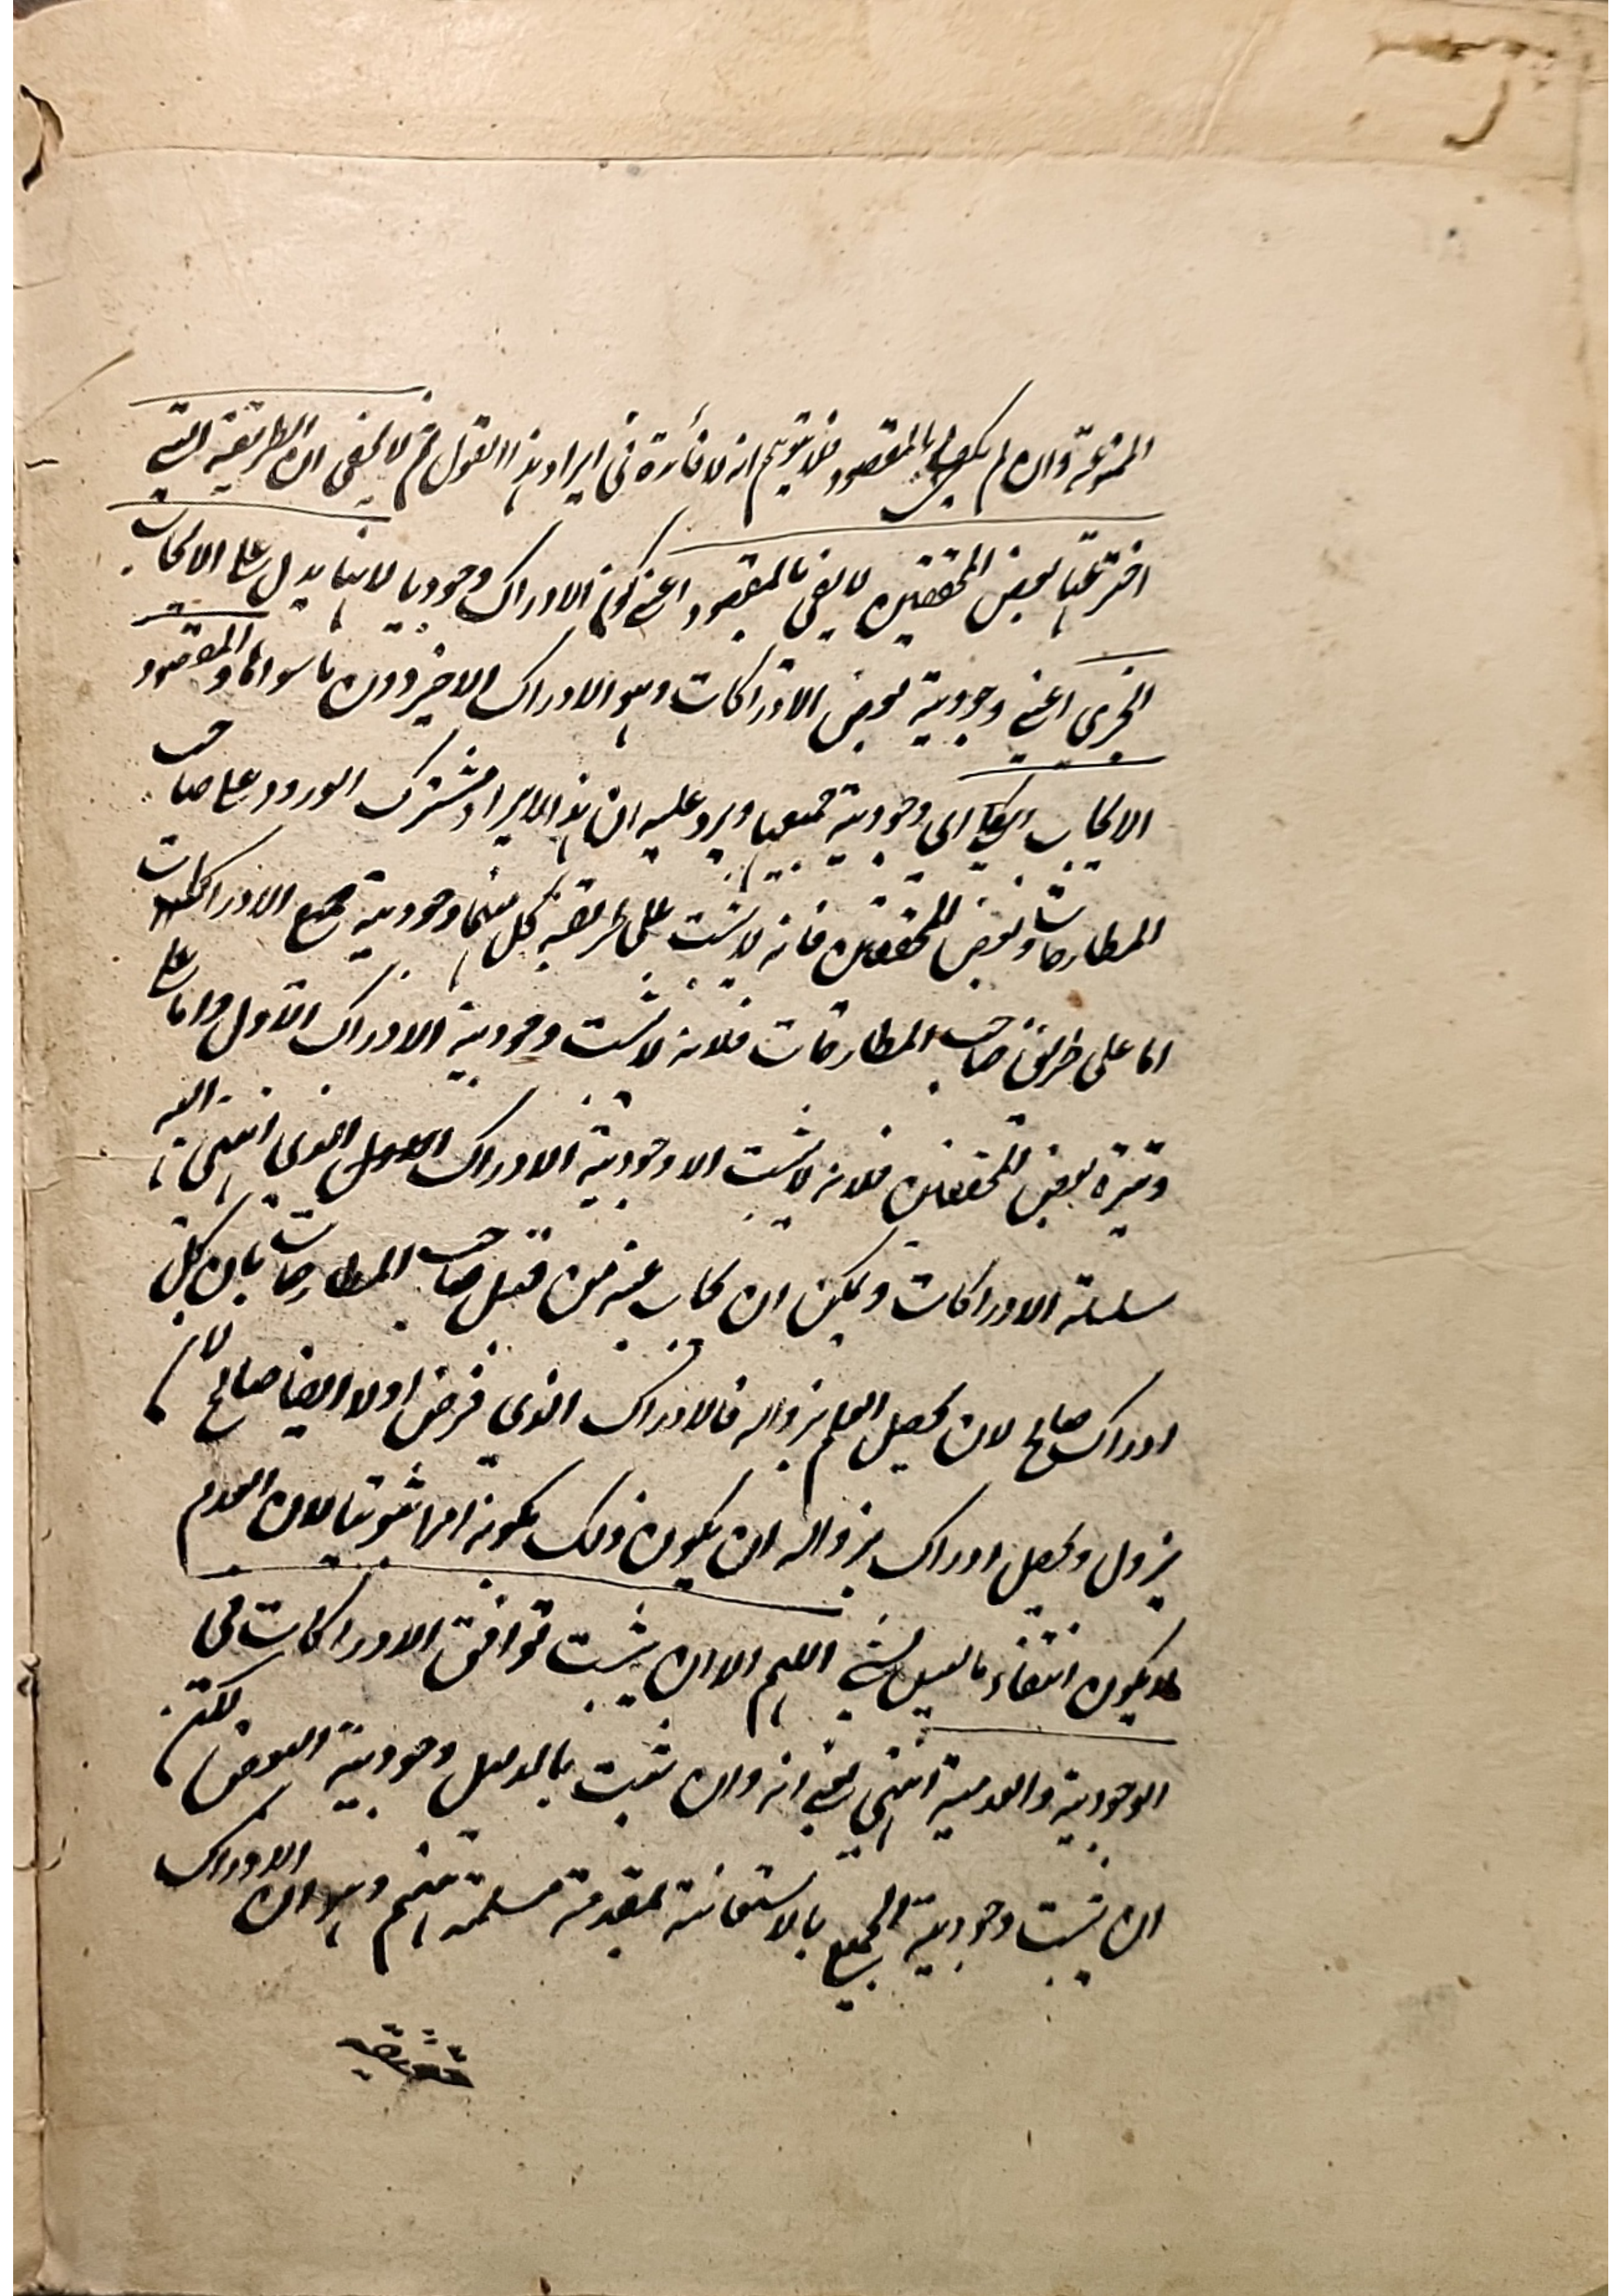 المخترعة وان لم يكف بالمقصود فلا يتوهم انه لا فائدة في ايراد هذا القول ثم لا يخفى ان الطريقة التي
اخترعها بعض المحققين لا يفي بالمقصود اعني كون الادراك وجوديا لانها يدل على الايجاب
الجزئي اعني وجودية بعض الادراكات وهو الادراك الاخير دون ما سواها والمقصود
الايجاب الكلي اي وجودية جميعها ويرد عليه ان هذا الايراد مشترك الورود على صاحب
المطارحات وبعض المحققين فانه لا يثبت على طريقة كل منهما وجودية جميع الادراكات
اما على طريق صاحب المطارحات فلانه لا يثبت وجودية الادراك الاول واما على
وتيرة بعض المحققين فلانه لا يثبت الا وجودية الادراك الذي انتهى اليه
سلسلة الادراكات ويمكن ان يجاب عنه من قبل صاحب المطارحات بان كل
ادراك صالح لان يحصل العلم بزواله فالادراك الذي فرض اولا ايضا صالح لان
يزول ويحصل ادراك بزواله ان يكون ذلك بكونه امرا ثبوتيا لان العدم
لا يكون انتفاء ما ليس بشيء اللهم الا ان يثبت توافق الادراكات في
الوجودية والعدمية انتهى يعني انه وان ثبت بالدليل وجودية البعض لكن
ان يثبت وجودية الجميع بالاستعانة بمقدمة مسلمة عندهم وهو ان الادراك